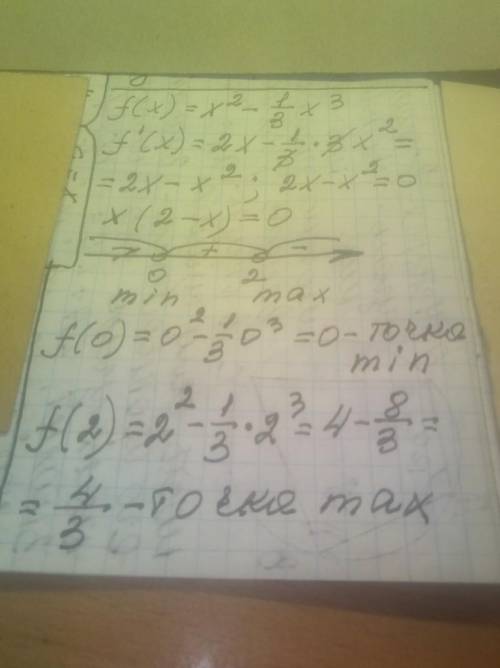 f(x) = x² - 1/3 x³
f'(x) = 2x - 1/3 · 3x² =
= 2x - x²; 2x - x² = 0
x(2-x) = 0
- + -
0 2
min max
f(0) = 0² - 1/3 0³ = 0 - точка
min
f(2) = 2² - 1/3 · 2³ = 4 - 8/3 =
= 4/3 - точка max